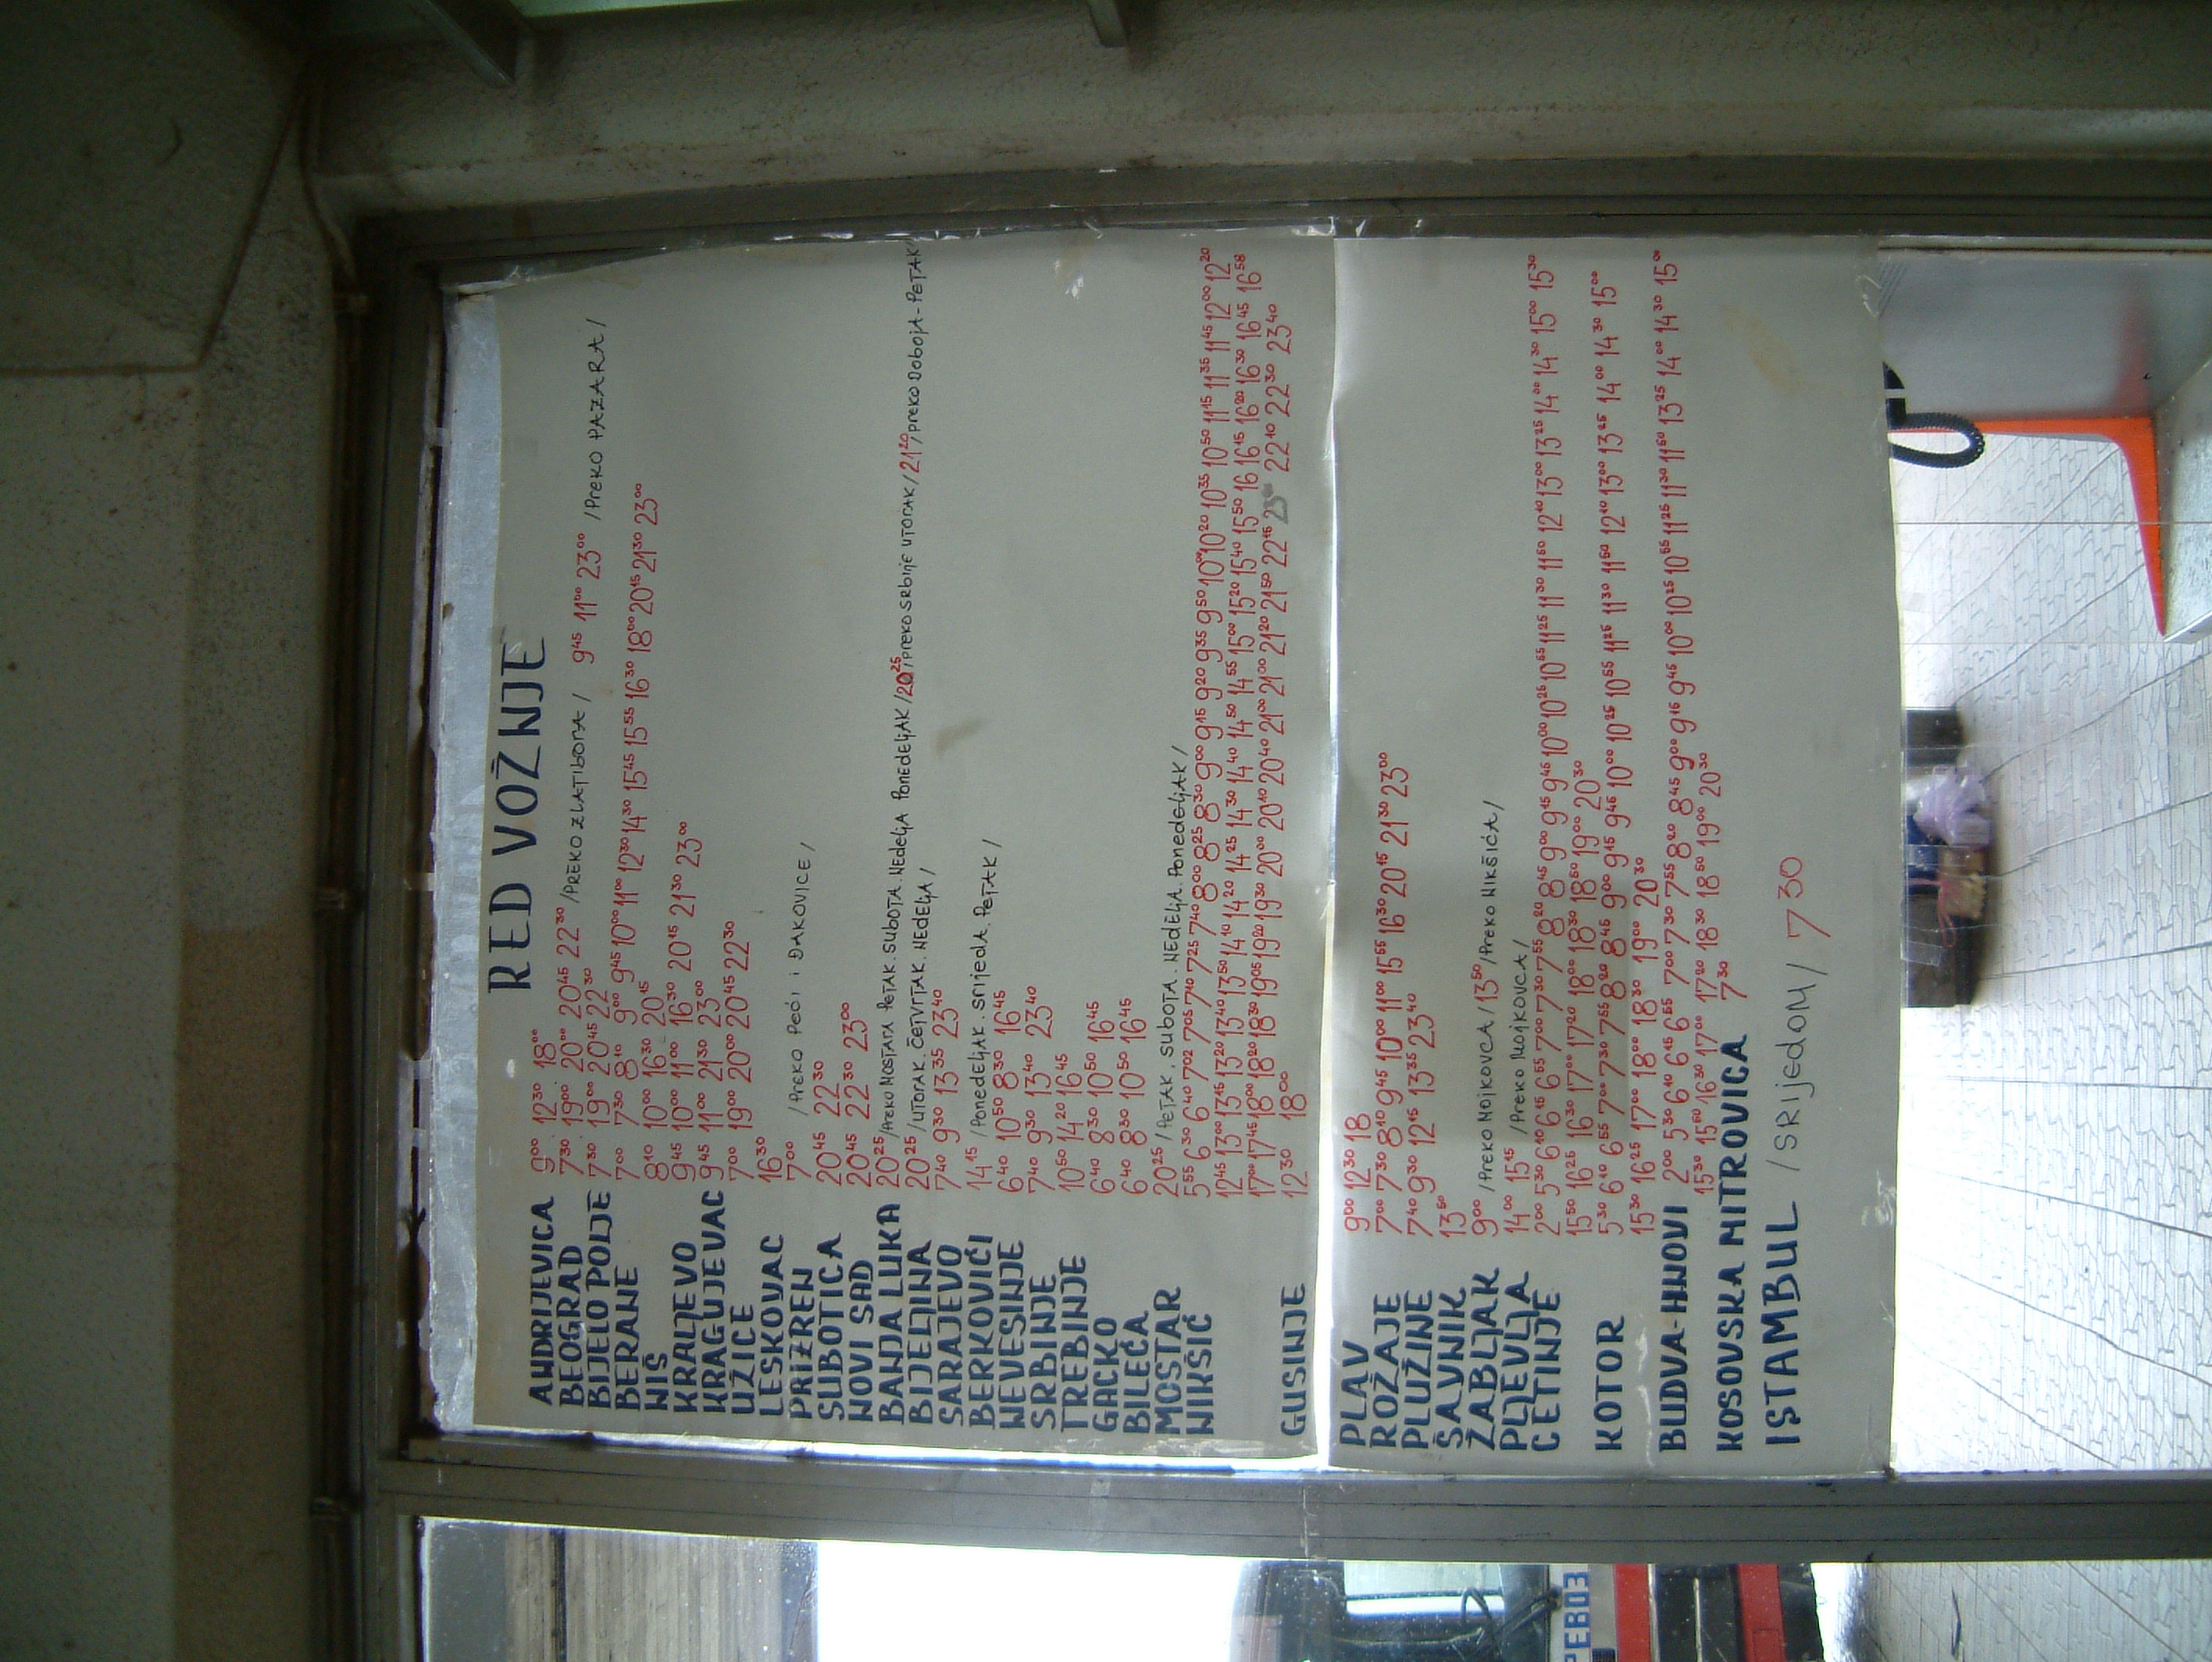 RED VOŽNJE
ANDRIJEVICA 9⁰⁰ 12³⁰ 18⁰⁰
BEOGRAD 7³⁰ 19⁰⁰ 20⁰⁰ 20⁴⁵ 22³⁰ /PREKO ZLATIBORA/ 9⁴⁵ 11⁰⁰ 23⁰⁰ /PREKO PAZARA/
BIJELO POLJE 7³⁰ 19⁰⁰ 20⁴⁵ 22³⁰
BERANE 7⁰⁰ 7³⁰ 8¹⁰ 9⁰⁰ 9⁴⁵ 10⁰⁰ 11⁰⁰ 12³⁰ 14³⁰ 15⁴⁵ 15⁵⁵ 16³⁰ 18⁰⁰ 20¹⁵ 21³⁰ 23⁰⁰
NIŠ 8¹⁰ 10⁰⁰ 16³⁰ 20¹⁵
KRALJEVO 9⁴⁵ 10⁰⁰ 11⁰⁰ 16³⁰ 20¹⁵ 21³⁰ 23⁰⁰
KRAGUJEVAC 9⁴⁵ 11⁰⁰ 21³⁰ 23⁰⁰
UŽICE 7⁰⁰ 19⁰⁰ 20⁰⁰ 20⁴⁵ 22³⁰
LESKOVAC 16³⁰
PRIZREN 7⁰⁰ /PREKO PEĆI i ĐAKOVICE/
SUBOTICA 20⁴⁵ 22³⁰
NOVI SAD 20⁴⁵ 22³⁰ 23⁰⁰
BANJA LUKA 20²⁵ /PREKO MOSTARA PETAK. SUBOTA. NEDELJA PONEDELJAK/ 20²⁵ /PREKO SRBINJE UTORAK/ 21²⁰ /PREKO DOBOJA-PETAK
BIJELJINA 20²⁵ /UTORAK. ČETVRTAK. NEDELJA/
SARAJEVO 7⁴⁰ 9³⁰ 13³⁵ 23⁴⁰
BERKOVIĆI 14¹⁵ /PONEDELJAK. SRIJEDA. PETAK/
NEVESINJE 6⁴⁰ 10⁵⁰ 8³⁰ 16⁴⁵
SRBINJE 7⁴⁰ 9³⁰ 13⁴⁰ 23⁴⁰
TREBINJE 10⁵⁰ 14²⁰ 16⁴⁵
GACKO 6⁴⁰ 8³⁰ 10⁵⁰ 16⁴⁵
BILEĆA 6⁴⁰ 8³⁰ 10⁵⁰ 16⁴⁵
MOSTAR 20²⁵ /PETAK. SUBOTA. NEDELJA. PONEDELJAK/
NIKŠIĆ 5⁵⁵ 6³⁰ 6⁴⁰ 7⁰² 7⁰⁵ 7¹⁰ 7²⁵ 7⁴⁰ 8⁰⁰ 8²⁵ 8³⁰ 9⁰⁰ 9¹⁵ 9²⁰ 9³⁵ 9⁵⁰ 10⁰⁰ 10²⁰ 10³⁵ 10⁵⁰ 11¹⁵ 11³⁵ 11⁴⁵ 12⁰⁰ 12²⁰
12⁴⁵ 13⁰⁰ 13¹⁵ 13²⁰ 13⁴⁰ 13⁵⁰ 14¹⁰ 14²⁰ 14²⁵ 14³⁰ 14⁴⁰ 14⁵⁰ 14⁵⁵ 15⁰⁰ 15²⁰ 15⁴⁰ 15⁵⁰ 16 16¹⁵ 16²⁰ 16³⁰ 16⁴⁵ 16⁵⁸
17⁰⁰ 17⁴⁵ 18⁰⁰ 18²⁰ 18³⁰ 19⁰⁵ 19²⁰ 19³⁰ 20⁰⁰ 20¹⁰ 20⁴⁰ 21⁰⁰ 21⁰⁰ 21²⁰ 21⁵⁰ 22¹⁵ 22¹⁰ 22³⁰ 23⁴⁰
GUSINJE 12³⁰ 18⁰⁰
PLAV 9⁰⁰ 12³⁰ 18
ROŽAJE 7⁰⁰ 7³⁰ 8¹⁰ 9⁴⁵ 10⁰⁰ 11⁰⁰ 15⁵⁵ 16³⁰ 20¹⁵ 21³⁰ 23⁰⁰
PLUŽINE 7⁴⁰ 9³⁰ 12¹⁵ 13³⁵ 23⁴⁰
ŠAVNIK 13⁵⁰
ŽABLJAK 9⁰⁰ /PREKO MOJKOVCA/ 13⁵⁰ /PREKO NIKŠIĆA/
PLJEVLJA 14⁰⁰ 15¹⁵ /PREKO MOJKOVCA/
CETINJE 2⁰⁰ 5³⁰ 6¹⁰ 6¹⁵ 6⁵⁵ 7⁰⁰ 7³⁰ 7⁵⁵ 8²⁰ 8⁴⁵ 9⁰⁰ 9¹⁵ 9⁴⁵ 10⁰⁰ 10²⁵ 10⁵⁵ 11²⁵ 11³⁰ 11⁵⁰ 12¹⁰ 13⁰⁰ 13²⁵ 14⁰⁰ 14³⁰ 15⁰⁰ 15³⁰
15⁵⁰ 16²⁵ 16³⁰ 17⁰⁰ 17²⁰ 18⁰⁰ 18³⁰ 18⁵⁰ 19⁰⁰ 20³⁰
KOTOR 5³⁰ 6¹⁰ 6⁵⁵ 7⁰⁰ 7³⁰ 7⁵⁵ 8²⁰ 8⁴⁵ 9⁰⁰ 9¹⁵ 9⁴⁵ 10⁰⁰ 10²⁵ 10⁵⁵ 11²⁵ 11³⁰ 11⁵⁰ 12¹⁰ 13⁰⁰ 13²⁵ 14⁰⁰ 14³⁰ 15⁰⁰
15³⁰ 16²⁵ 17⁰⁰ 18⁰⁰ 18³⁰ 19⁰⁰ 20³⁰
BUDVA-H.NOVI 2⁰⁰ 5³⁰ 6¹⁰ 6¹⁵ 6⁵⁵ 7⁰⁰ 7³⁰ 7⁵⁵ 8²⁰ 8⁴⁵ 9⁰⁰ 9¹⁵ 9⁴⁵ 10⁰⁰ 10²⁵ 10⁵⁵ 11²⁵ 11³⁰ 11⁵⁰ 13²⁵ 14⁰⁰ 14³⁰ 15⁰⁰
15³⁰ 15⁵⁰ 16³⁰ 17⁰⁰ 17²⁰ 18³⁰ 18⁵⁰ 19⁰⁰ 20³⁰
KOSOVSKA MITROVICA 7³⁰
ISTAMBUL /SRIJEDOM/ 7³⁰